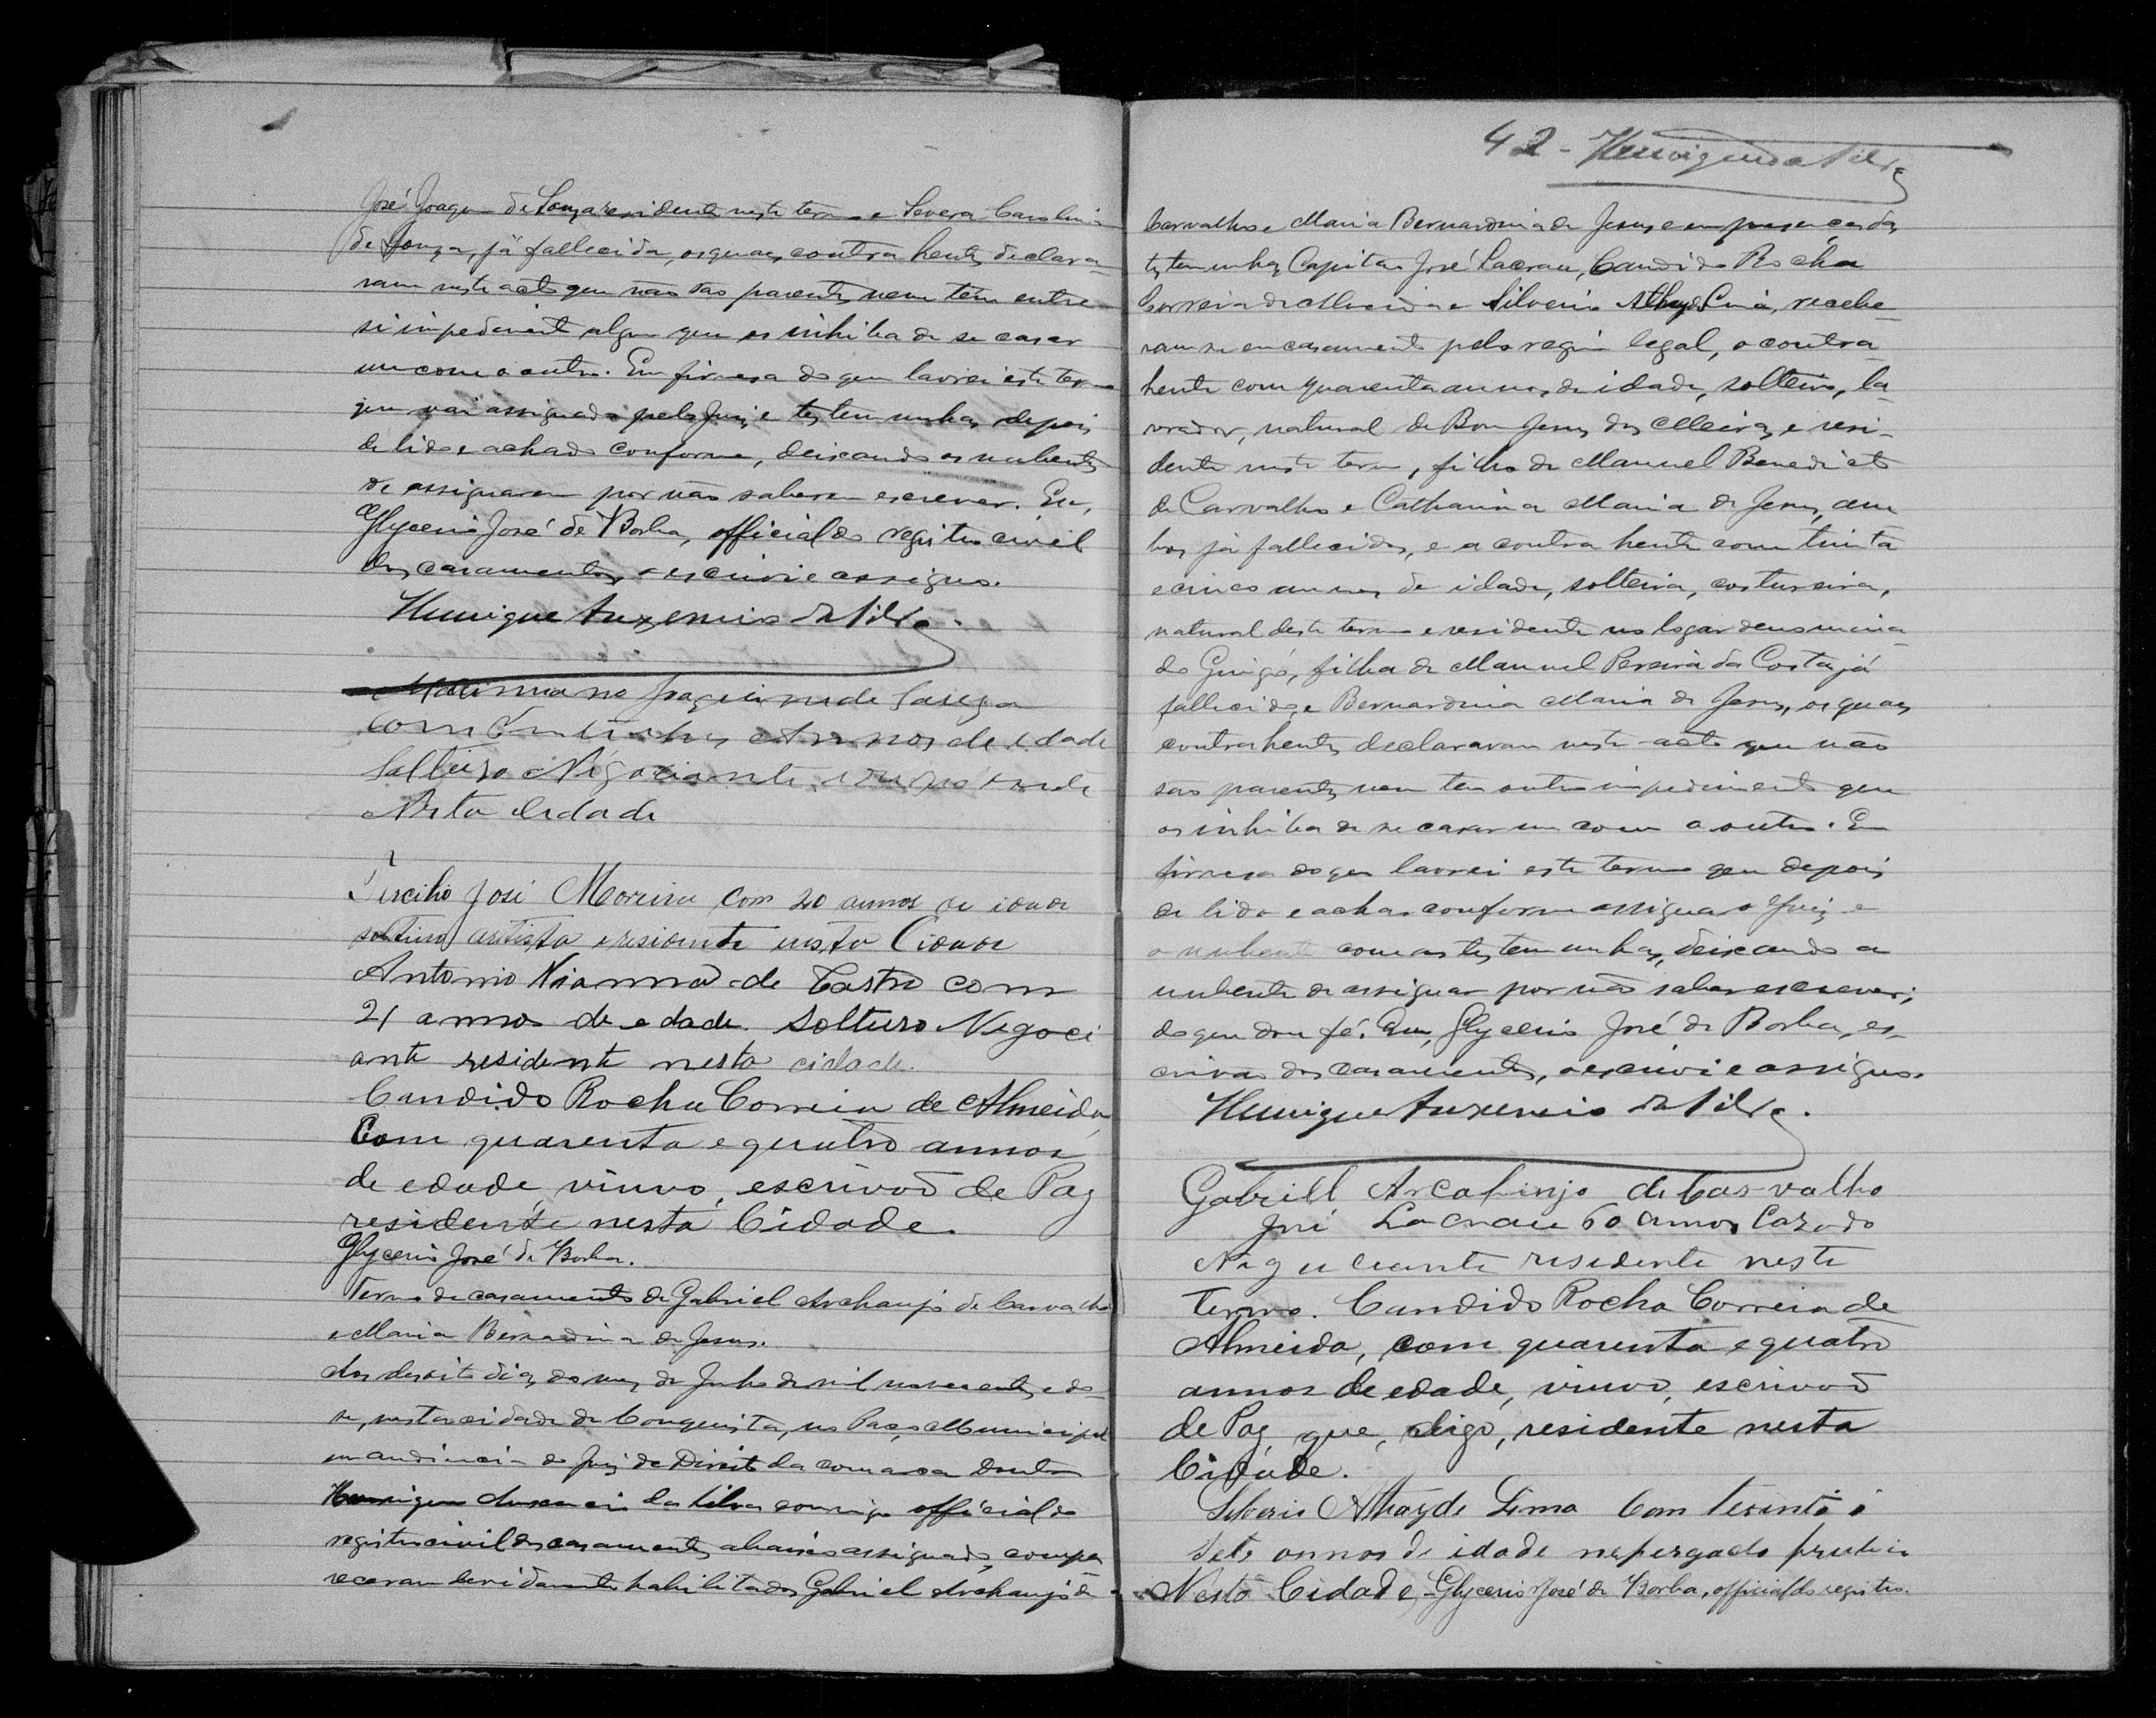 José Joaquim de Souza residente neste termo e Severa Carolina
de Souza, já fallecida, os quaes contrahentes declara-
ram neste acto que não são parentes nem têm entre
si impedimento algum que os inhiba de se casar
um com o outro. Em firmesa do que lavrei este termo
que vai assignado pelo Juiz e testemunhas depois
de lido e achado conforme, deixando os nubentes
de assignarem por não saberem escrever. Eu,
Glycerio José de Borba, official do registro civil
dos casamentos o escrivi e assigno.
Henrique Auxencio da Silva.
Joaquim de Souza
com annos de edade
Solteiro Negociante residente
Nesta Cidade
Tercilio José Moreira com 20 annos de idade
solteiro artista e residente nesta Cidade
Antonio Vianna de Castro com
21 annos de edade. Solteiro Negoci
ante residente nesta cidade.
Candido Rocha Correia de Almeida
Com quarenta e quatro annos
de edade, viuvo, escrivaõ de Paz
residente nesta Cidade.
Glycerio José de Borba.
Termo de casamento de Gabriel Archanjo de Carvalho
e Maria Bernardina de Jesus.
Aos desoito dias do mez de Junho de mil novecentos e do-
se, nesta cidade de Conquista, no Paço Municipal
em audiencia do Juiz de Direito da comarca Doutor
Henrique Auxencio da Silva comigo official do
registro civil dos casamentos abaixo assignado, compa
receram devidamente habilitados Gabriel Archanjo de
42 - Henrique da Silva
Carvalho e Maria Bernardina de Jesus e em presença das
testemunhas Capitão José Lacrau, Candido Rocha
Correia de Almeida e Silverio Athayde Lima, recebe-
ram-se em casamento pelo regim legal, o contra-
hente com quarenta annos de idade, solteiro, la-
vrador, natural de Bom Jesus dos Meiras, e resi-
dente neste termo, filho de Manuel Benedicto
de Carvalho e Catharina Maria de Jesus, am
bos já fallecidos, e a contrahente com trinta
e cinco annos de idade, solteira, costureira,
natural deste termo e residente no logar denomina-
do Guigó, filha de Manuel Pereira da Costa já
fallecido, e Bernardina Maria de Jesus, os quaes
contrahentes declararam neste acto que não
são parentes nem tem outro impedimento que
os inhiba de se casar um com o outro. Em
firmesa do que lavrei este termo que depois
de lido e achar conforme assigna o Juiz e
o nubente com as testemunhas, deixando a
nubente de assignar por não saber escrever;
do que dou fé. Eu, Glycerio José de Borba, es-
crivão dos casamentos, o escrivi e assigno.
Henrique Auxencio da Silva.
Gabriell Arcahinjo de Carvalho
José Lacrau 60 annos Casado
Neguciante residente neste
Termo. Candido Rocha Correia de
Almeida, com quarenta e quatro
annos de edade, viuvo, escrivaõ
de Paz, que, digo, residente nesta
Cidade.
Silverio Athayde Lima Com trinta i
Sete annos de idade
Nesta Cidade, Glycerio José de Borba, official do registro.